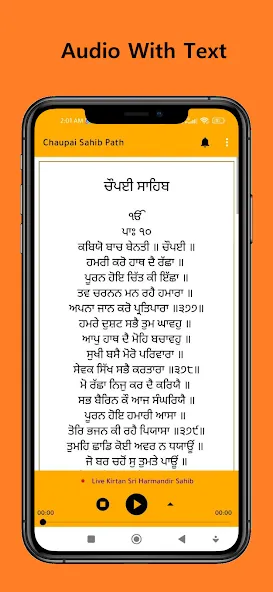 Audio With Text
2:07 AM
Chaupai Sahib Path
ਚੌਪਈ ਸਾਹਿਬ
ੴ
ਪਾਃ ੧੦
ਕਬਿਯੋ ਬਾਚ ਬੇਨਤੀ ॥ ਚੌਪਈ ॥
ਹਮਰੀ ਕਰੋ ਹਾਥ ਦੈ ਰੱਛਾ ॥
ਪੂਰਨ ਹੋਇ ਚਿੱਤ ਕੀ ਇੱਛਾ ॥
ਤਵ ਚਰਨਨ ਮਨ ਰਹੈ ਹਮਾਰਾ ॥
ਅਪਨਾ ਜਾਨ ਕਰੋ ਪ੍ਰਤਿਪਾਰਾ ॥੩੭੭॥
ਹਮਰੇ ਦੁਸ਼ਟ ਸਭੈ ਤੁਮ ਘਾਵਹੁ ॥
ਆਪੁ ਹਾਥ ਦੈ ਮੋਹਿ ਬਚਾਵਹੁ ॥
ਸੁਖੀ ਬਸੈ ਮੋਰੋ ਪਰਿਵਾਰਾ ॥
ਸੇਵਕ ਸਿੱਖ ਸਭੈ ਕਰਤਾਰਾ ॥੩੭੮॥
ਮੋ ਰੱਛਾ ਨਿਜੁ ਕਰ ਦੈ ਕਰਿਯੈ ॥
ਸਭ ਬੈਰਿਨ ਕੌ ਆਜ ਸੰਘਰਿਯੈ ॥
ਪੂਰਨ ਹੋਇ ਹਮਾਰੀ ਆਸਾ ॥
ਤੋਰਿ ਭਜਨ ਕੀ ਰਹੈ ਪਿਯਾਸਾ ॥੩੭੯॥
ਤੁਮਹਿ ਛਾਡਿ ਕੋਈ ਅਵਰ ਨ ਧਯਾਊਂ ॥
ਜੋ ਬਰ ਚਹੋਂ ਸੁ ਤੁਮਤੇ ਪਾਊਂ ॥
Live Kirtan Sri Harmandir Sahib
00:00 00:00